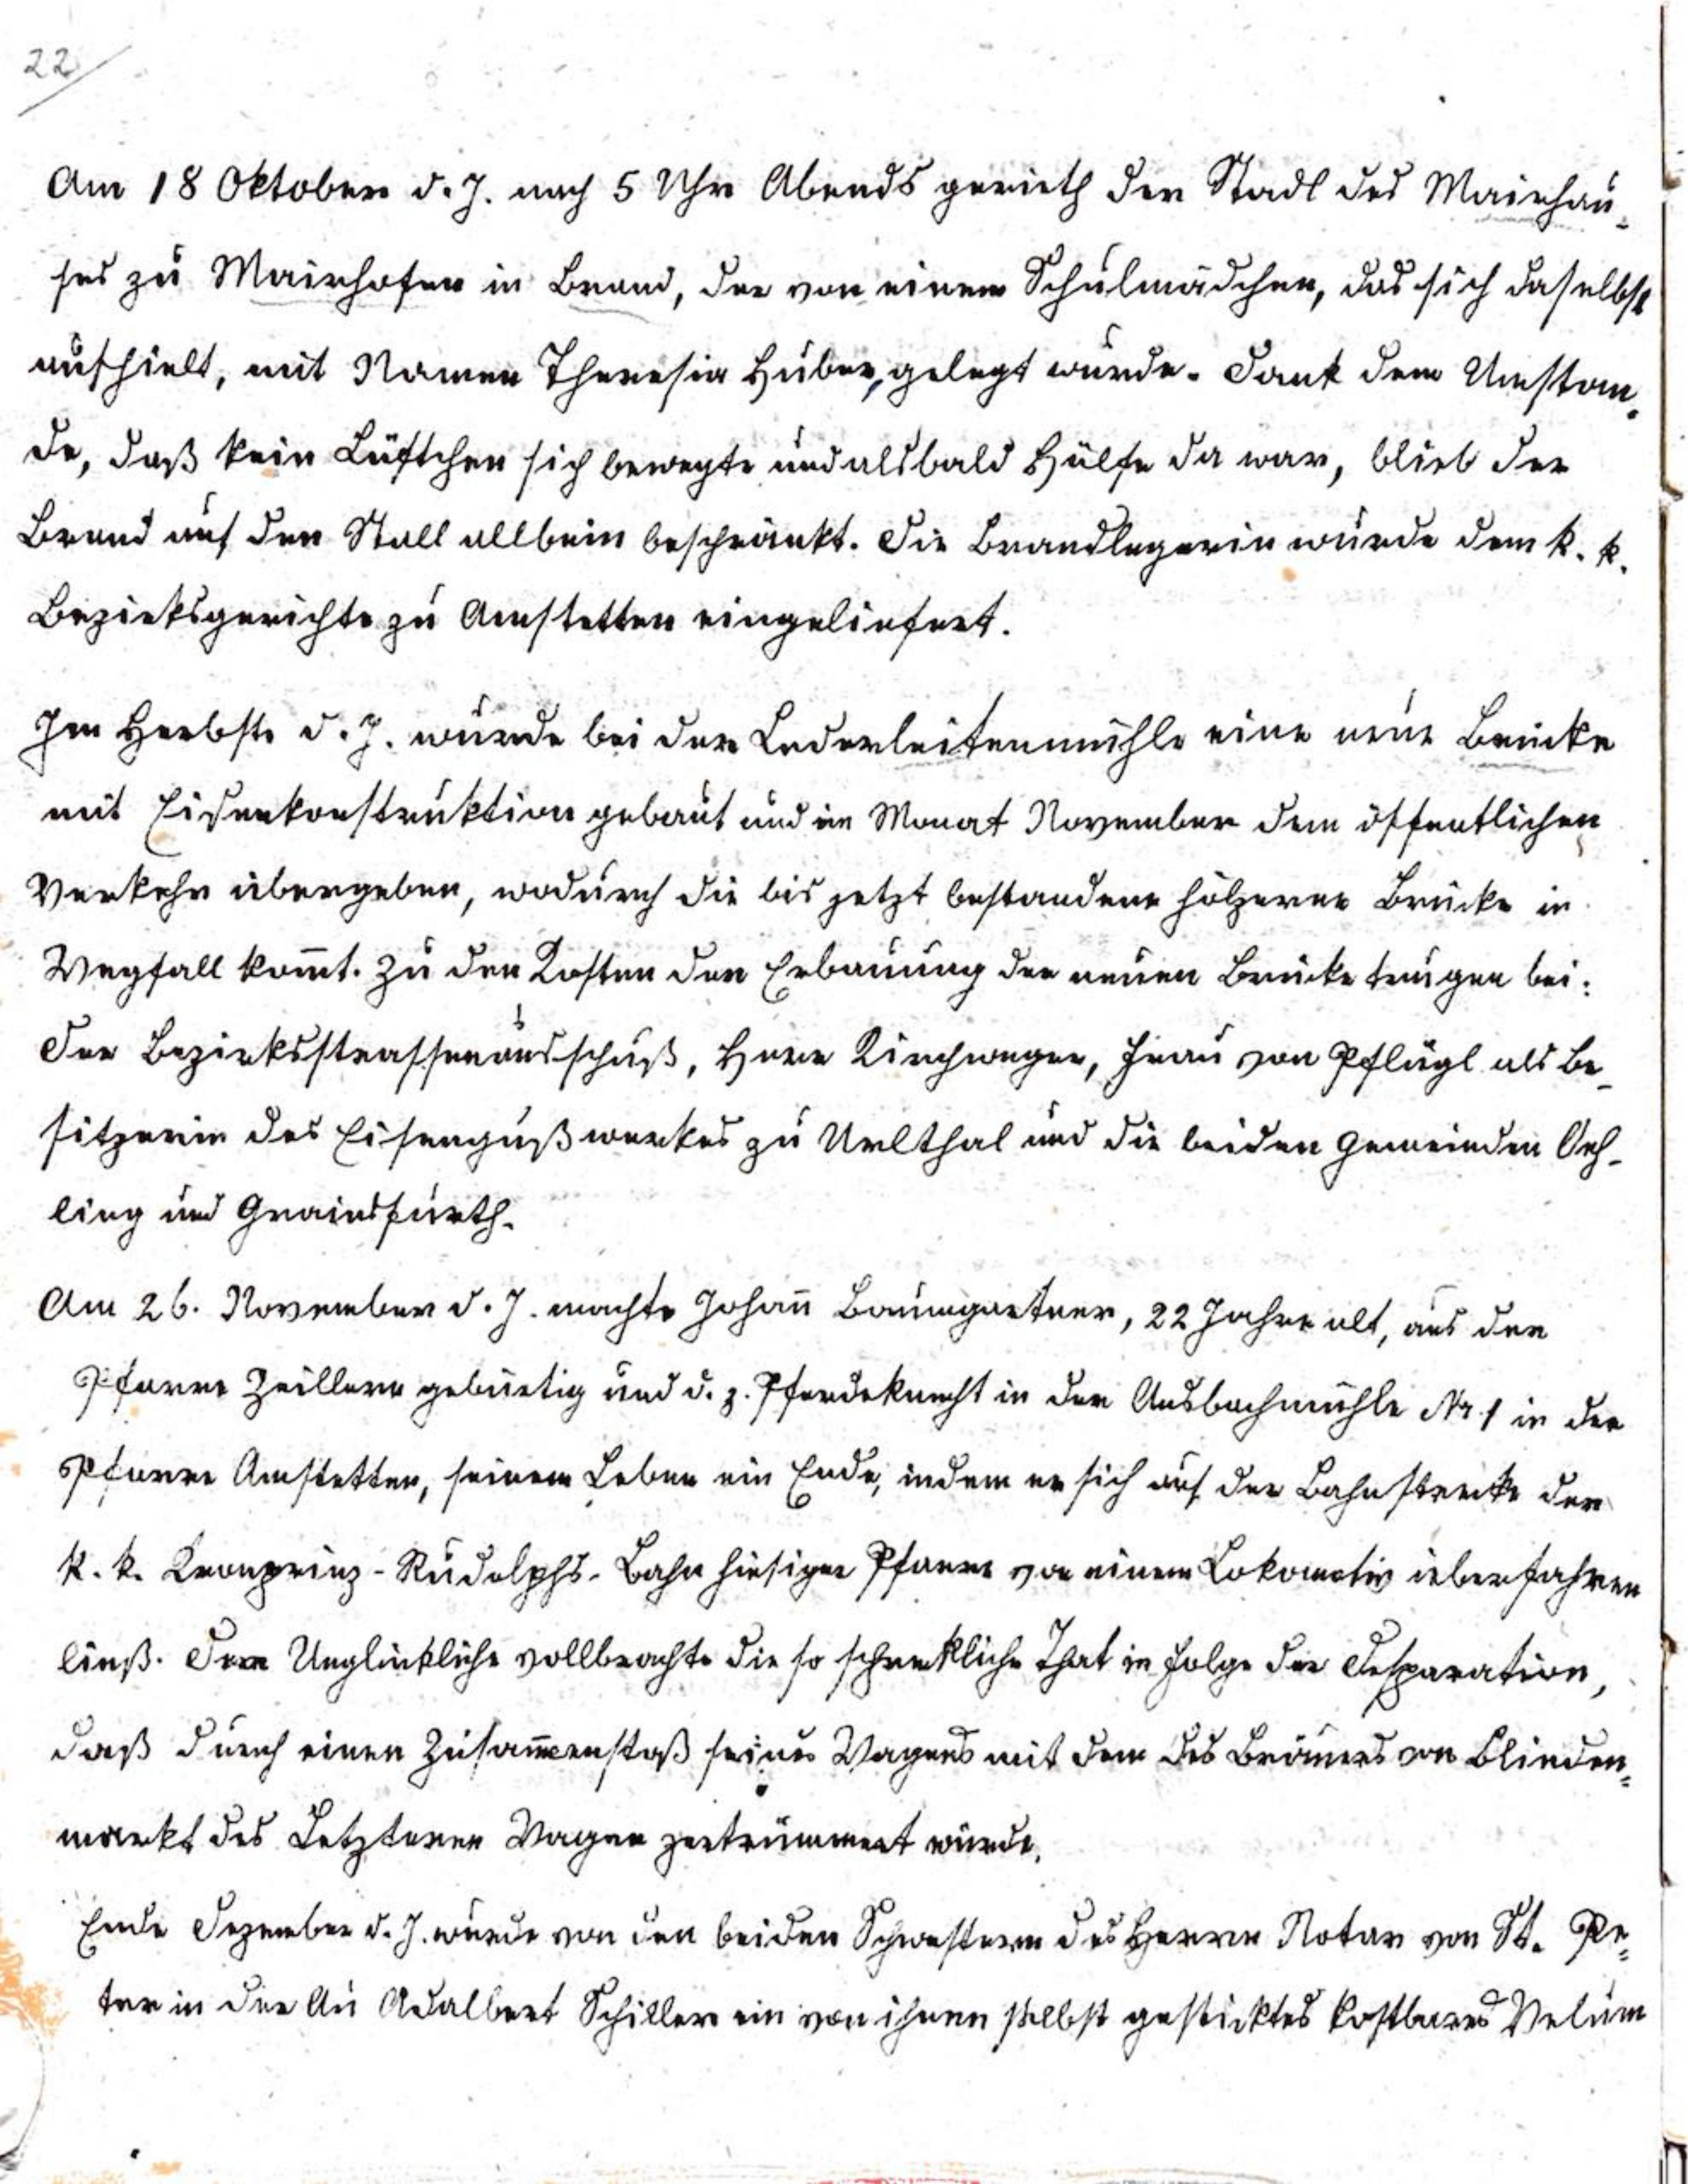 22
Am 18 Oktober d. J. nach 5 Uhr Abends gerieth der Stadl des Mairhau-
ses zu Mairhofen in Brand, der von einem Schulmädchen, das sich daselbst
aufhielt, mit Namen Theresia Huber, gelegt wurde. Dank dem Umstan-
de, daß kein Lüftchen sich bewegte und alsbald Hülfe da war, blieb der
Brand auf den Stall allbein beschränkt. Die Brandlegerin wurde dem k. k.
Bezirksgerichte zu Amstetten eingeliefert.
Im Herbste d. J. wurde bei der Lederleitenmühle eine neue Brücke
mit Eisenkonstruktion gebaut und im Monat November dem öffentlichen
Verkehr übergeben, wodurch die bis jetzt bestandene hölzerne Brücke in
Wegfall kom̅t. Zu den Kosten der Erbauung der neuen Brücke trugen bei:
Der Bezirksstrassenausschuß, Herr Kirchweger, Frau von Pflügl als Be-
sitzerin des Eisengußwerkes zu Urlthal und die beiden Gemeinden Oeh-
ling und Grainsfurth.
Am 26. November d. J. machte Johan̅ Baumgartner, 22 Jahre alt, aus der
Pfarre Zeillern gebürtig und d. z. Pferdeknecht in der Ausbachmühle Nr. 1 in der
Pfarre Amstetten, seinem Leben ein Ende, indem er sich auf der Bahnstrecke der
k. k. Kronprinz-Rudolphs-Bahn hiesiger Pfarre von einem Lokomotiv überfahren
ließ. Der Unglückliche vollbrachte die so schreckliche That in Folge der Desparation,
daß durch einen Zusam̅enstoß seines Wagens mit dem des Bräuers von Blinden-
markt des Letzteren Wagen zertrümmert wurde.
Ende Dezember d. J. wurde von den beiden Schwestern des Herrn Notar von St. Pe-
ter in der Au Adalbert Schiller ein von ihnen selbst gesticktes kostbares Velum